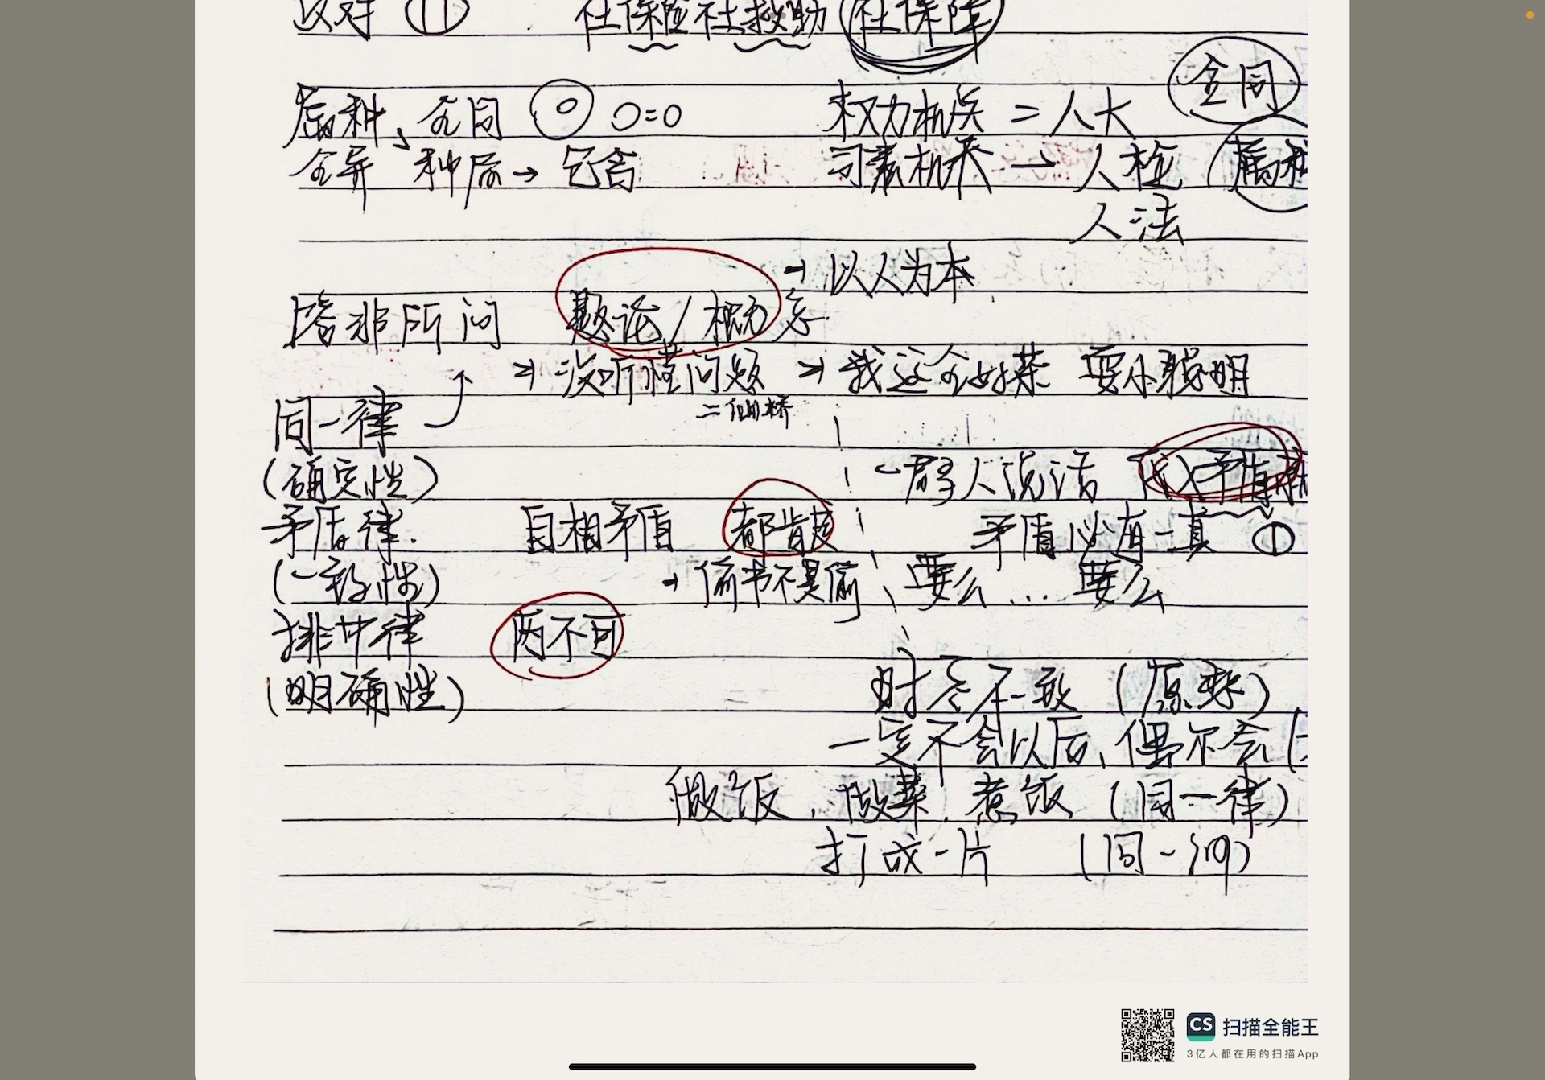 反对 ① 社保险社救助 社保障
属种、全同 0=0 权力机关 = 人大 全同
全异 种属→包含 司法机关 → 人检 属种
人法
→ 以人为本
答非所问 题论/概念
→ 没听懂问题 → 我这个好菜 耍小聪明
= 仙桥
同一律
(确定性) 一群人说话
矛盾律. 自相矛盾 都肯定 矛盾必有一真 ①
(一致性) → 偷书不是偷、要么…要么
排中律 两不可
(明确性) 时态不一致 (原来)
一定不会以后、偶尔会
做饭、做菜、煮饭 (同一律)
打成一片 (同一词)
CS 扫描全能王
3亿人都在用的扫描App